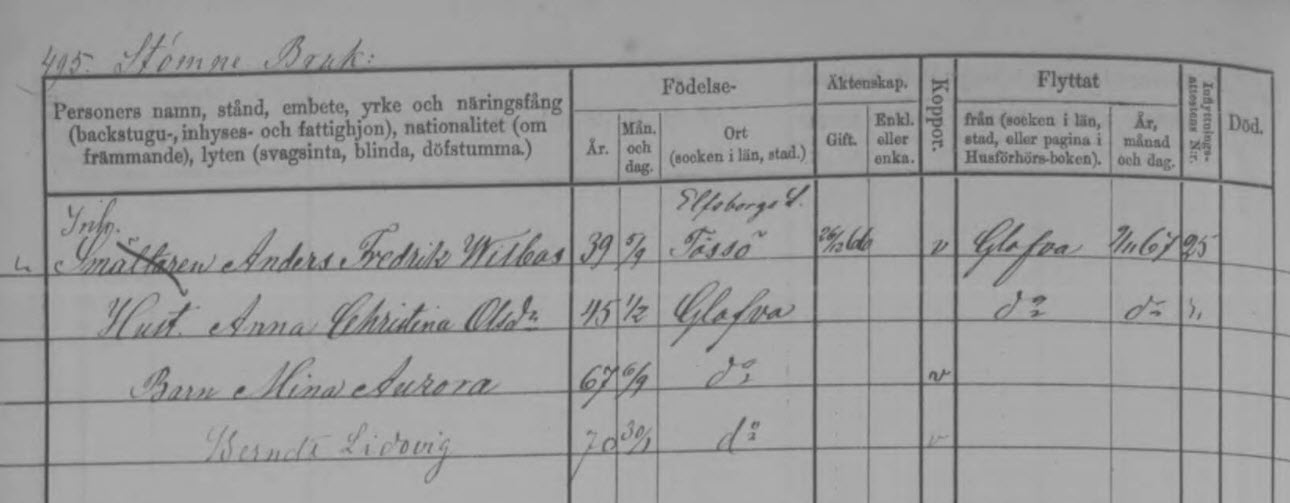 495. Stömne Bruk:
Personers namn, stånd, embete, yrke och näringsfång
(backstugu-, inhyses- och fattighjon), nationalitet (om
främmande), lyten (svagsinta, blinda, döfstumma.)
Födelse-
År.
Mån.
och
dag.
Ort
(socken i län, stad.)
Äktenskap.
Gift.
Enkl.
eller
enka.
Koppor.
Flyttat
från (socken i län,
stad, eller pagina i
Husförhörs-boken).
År,
månad
och dag.
Inflyttnings-
attestens N:r.
Död.
Inh. Elfsborgs L.
Smältaren Anders Fredrik Wilbas 39 5/9 Tössö 26/12 66 v Glafva 2/11 67 25
Hust. Anna Christina Olsdr 45 1/2 Glafva do do "
Barn Mina Aurora 67 6/9 do v
Berndt Lidovig 70 30/1 do v